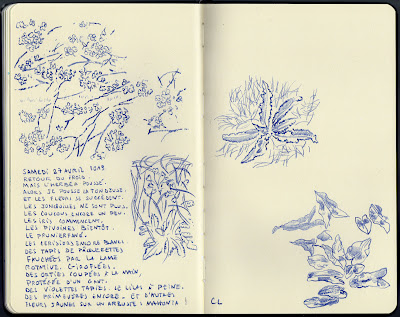 SAMEDI 27 AVRIL 2013
RETOUR DU FROID.
MAIS L'HERBE A POUSSÉ.
ALORS JE POUSSE LA TONDEUSE.
ET LES FLEURS SE SUCCÈDENT.
LES JONQUILLES NE SONT PLUS.
LES COUCOUS ENCORE UN PEU.
LES IRIS COMMENCENT,
LES PIVOINES BIENTÔT.
LE PRUNIER FANÉ.
LES CERISIERS ENCORE BLANCS
DES TAPIS DE PÂQUERETTES
FAUCHÉES PAR LA LAME
ROTATIVE. GIROFLÉES.
DES ORTIES COUPÉES À LA MAIN,
PROTÉGÉE D'UN GANT.
DES VIOLETTES TAPIES. LE LILAS À PEINE.
DES PRIMEVÈRES ENCORE. ET D'AUTRES
FLEURS JAUNES SUR UN ARBUSTE : MAHONIA !
CL